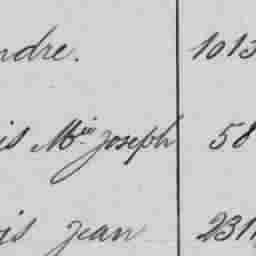 ndre. 1013
is M.ie Joseph 58
is Jean 231